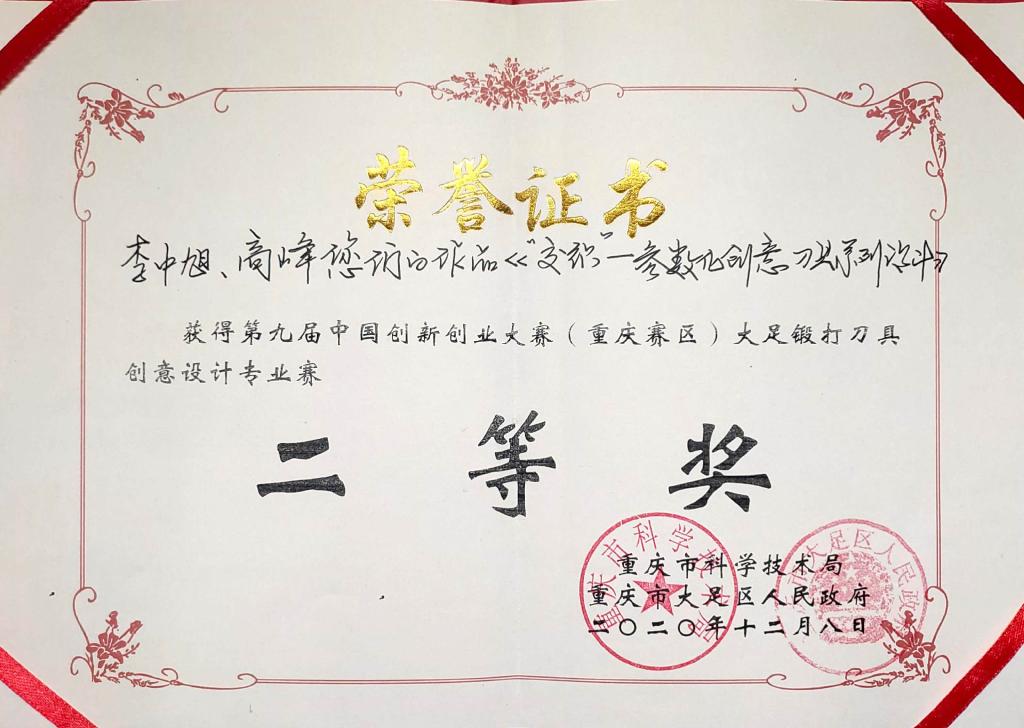 荣誉证书
李中旭、高峰您们的作品《“交织”—参数化创意刀具系列设计》
获得第九届中国创新创业大赛（重庆赛区）大足锻打刀具
创意设计专业赛
二等奖
重庆市科学技术局
重庆市大足区人民政府
二〇二〇年十二月八日
重庆市科学技术局
大足区人民政府